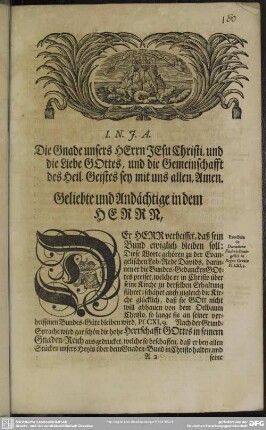 180
I. N. J. A.
Die Gnade unsers HErrn JEsu Christi, und
die Liebe GOttes, und die Gemeinschafft
des Heil. Geistes sey mit uns allen, Amen.
Geliebte und Andächtige in dem
HERRN,
DEr HERR verheisset, daß sein
Bund ewiglich bleiben soll:
Diese Worte gehören zu der Evan-
gelischen Lob-Rede Davids, darin-
nen er die Bundes-Gedancken GOt-
tes preiset, welche er in Christo über
seine Kirche zu derselben Erhaltung
führet; schätzet auch zugleich die Kir-
che glücklich, daß sie GOtt nicht
will abhauen von dem Oelbaum
Christo, so lange sie an seiner ver-
heissenen Bundes-Güte bleiben wird. Ps. CXI, 9. Nach der Grund-
Sprache wird gar schön die hohe Herrschafft GOttes in seinem
Gnaden-Reich ausgedrucket, welche so beschaffen, daß er ob allen
Stücken unsers Heyls über dem Gnaden-Bund in Christo halten und
A 2
seine